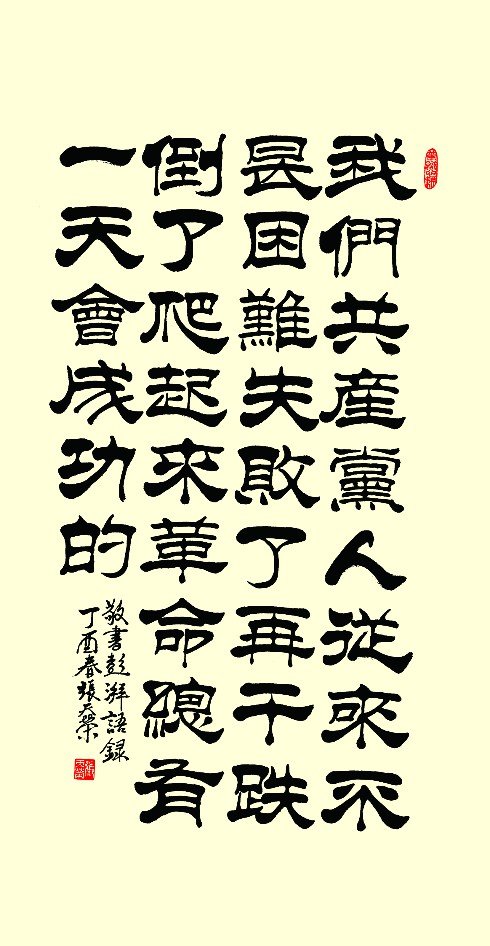 我們共産黨人從來不
畏困難失敗了再干跌
倒了爬起來革命總有
一天會成功的
敬書彭湃語録
丁酉春張天榮